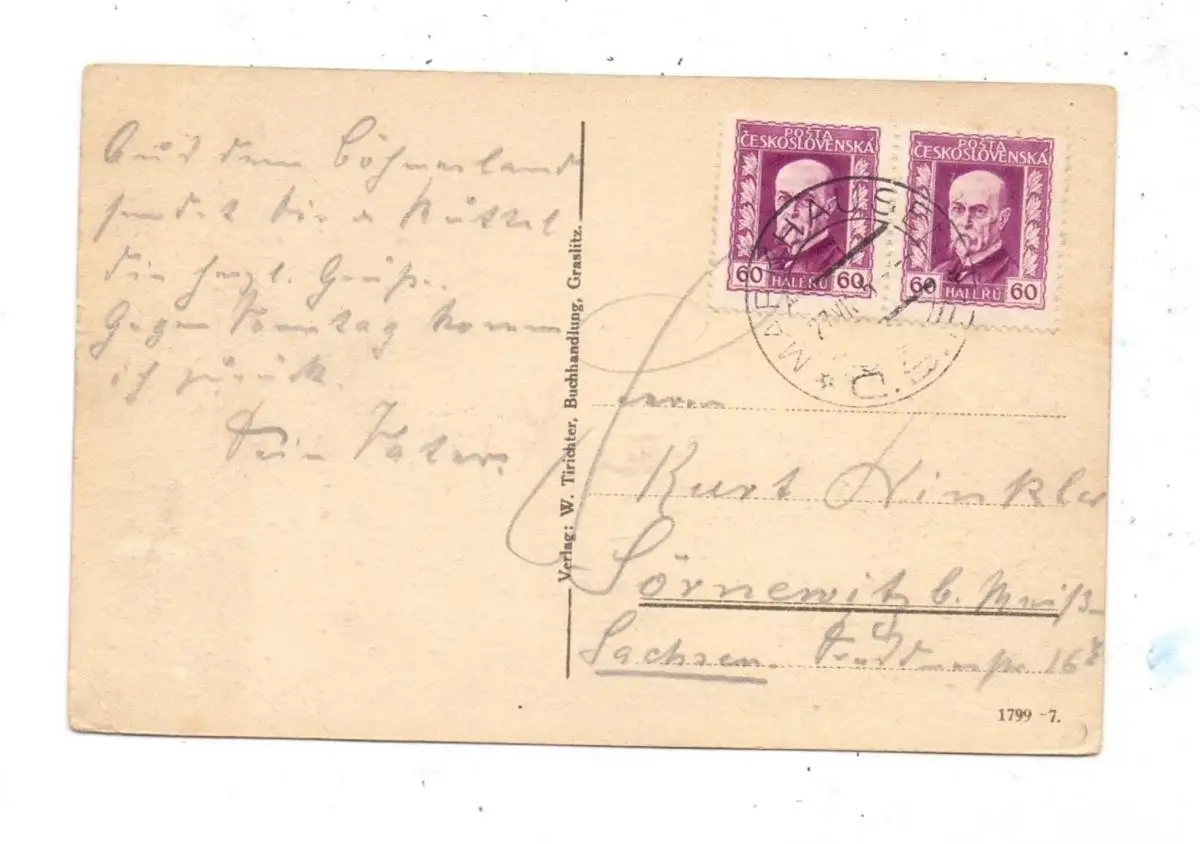 Aus dem Böhmerland
sendet Dir u
die herzl. Grüße.
Gegen Sonntag komme
ich zurück.
Dein Vater.
Verlag: W. Tirichter, Buchhandlung, Graslitz.
POŠTA
ČESKOSLOVENSKÁ
60 60
HALÉŘŮ
POŠTA
ČESKOSLOVENSKÁ
60 60
HALÉŘŮ
MARKHAUSEN
Herrn
Kurt Winkler
Sörnewitz b. Meiß
Sachsen. 16
1799 -7.